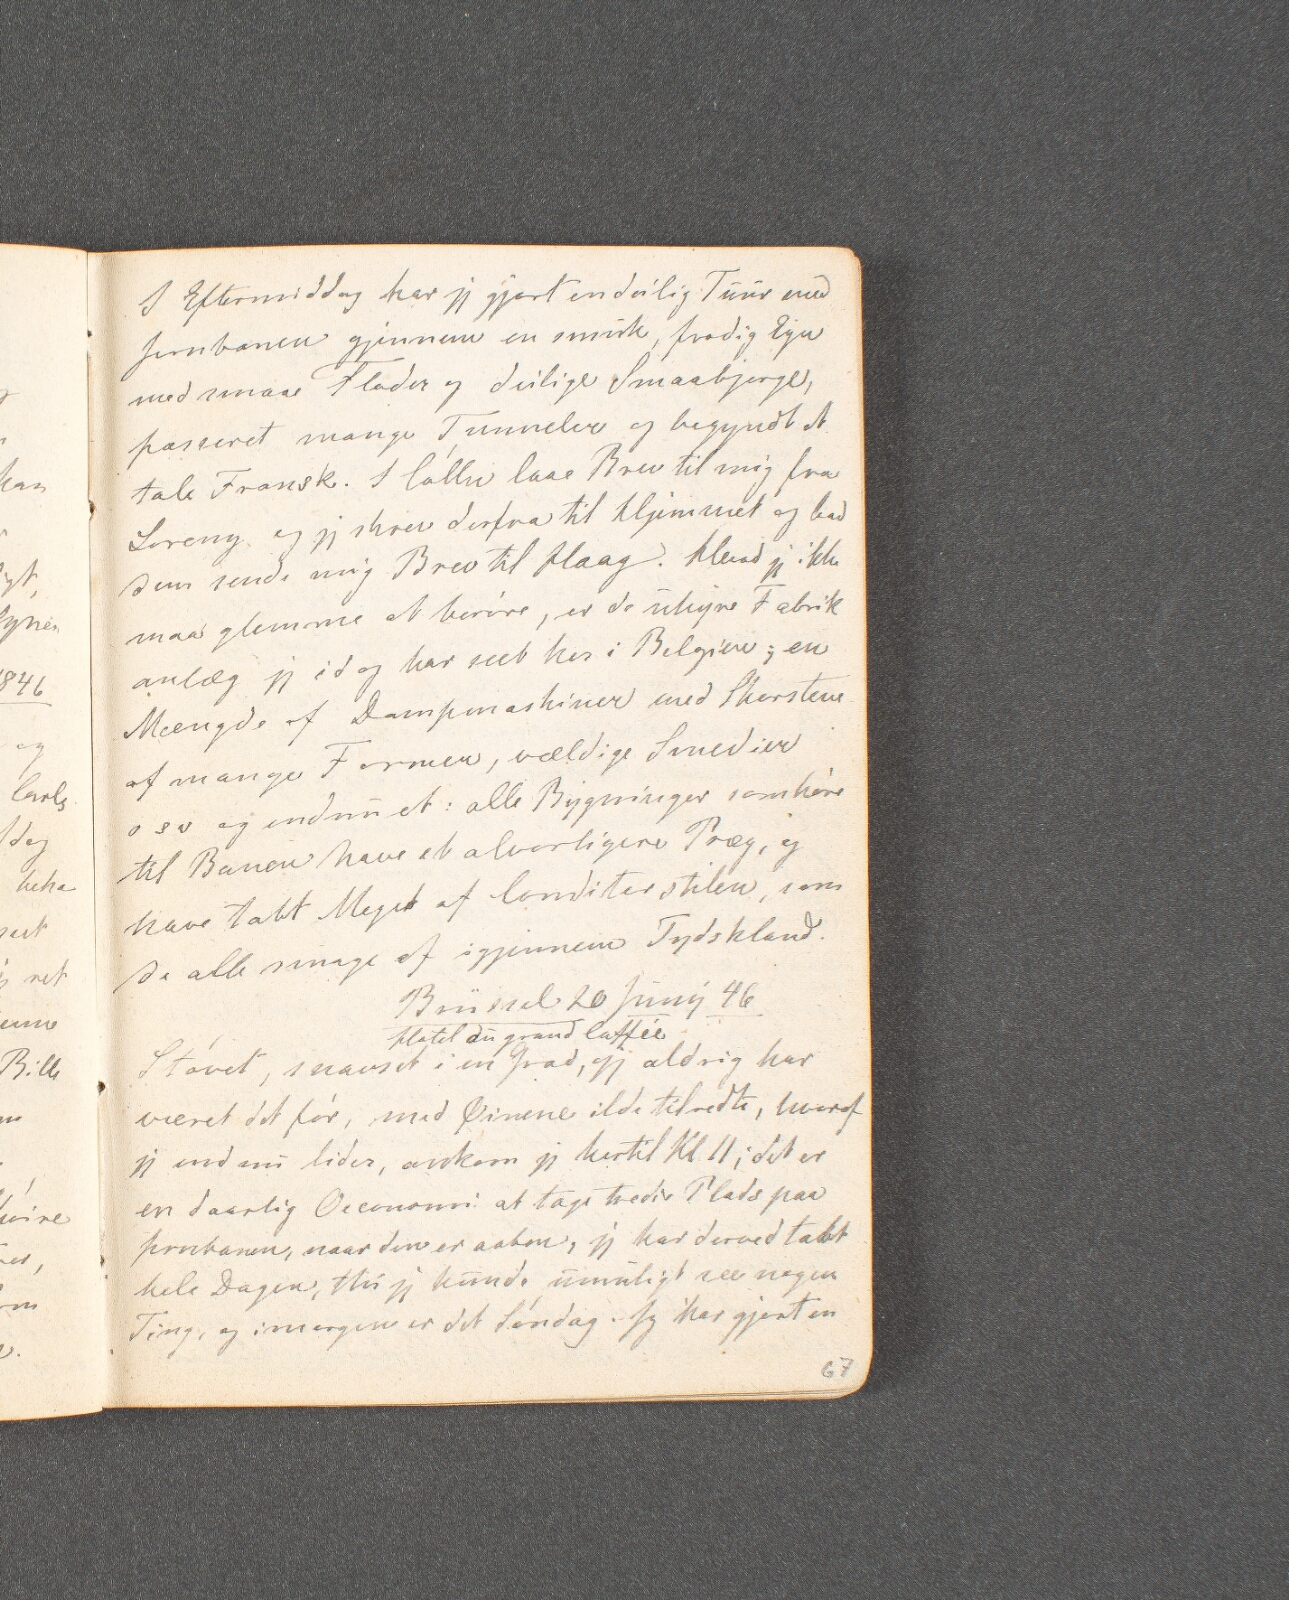 I Eftermiddag har jeg gjort en deilig Tuur med
Jernbanen gjennem en smuk, frodig Egn
med smaae Floder og deilige Smaabjerge,
passeret mange Tunneler og begyndt at
tale Fransk. I Cölln laae Brev til mig fra
Loreny og jeg skrev derfra til Hjemmet og bad
dem sende mig Brev til Haag. Hvad jeg ikke
maa glemme at berøre, er de uhyre Fabrik
anlæg jeg idag har seet her i Belgien; en
Mængde af Dampmaskiner med Skorstene
af mange Former, vældige Smedier
osv og endnu et: alle Bygninger som høre
til Banen have et alvorligere Præg, og
have tabt Meget af Conditorstilen, som
de alle smage af igjennem Tydskland.
Brüssel 20 Juny 46
Hotel du grand Caffée
Støvet, snavset i en Grad, jeg aldrig har
været det før, med Øinene ilde tilredte, hvoraf
jeg endnu lider, ankom jeg hertil Kl 11; det er
en daarlig Oeconomi at tage tredie Plads paa
Jernbanen, naar den er aaben, jeg har derved tabt
hele Dagen, thi jeg kunde umuligt see nogen
Ting, og imorgen er det Søndag. Jeg har gjort en
67
han
1846
og
Carls
dag
seet
ret
Bille